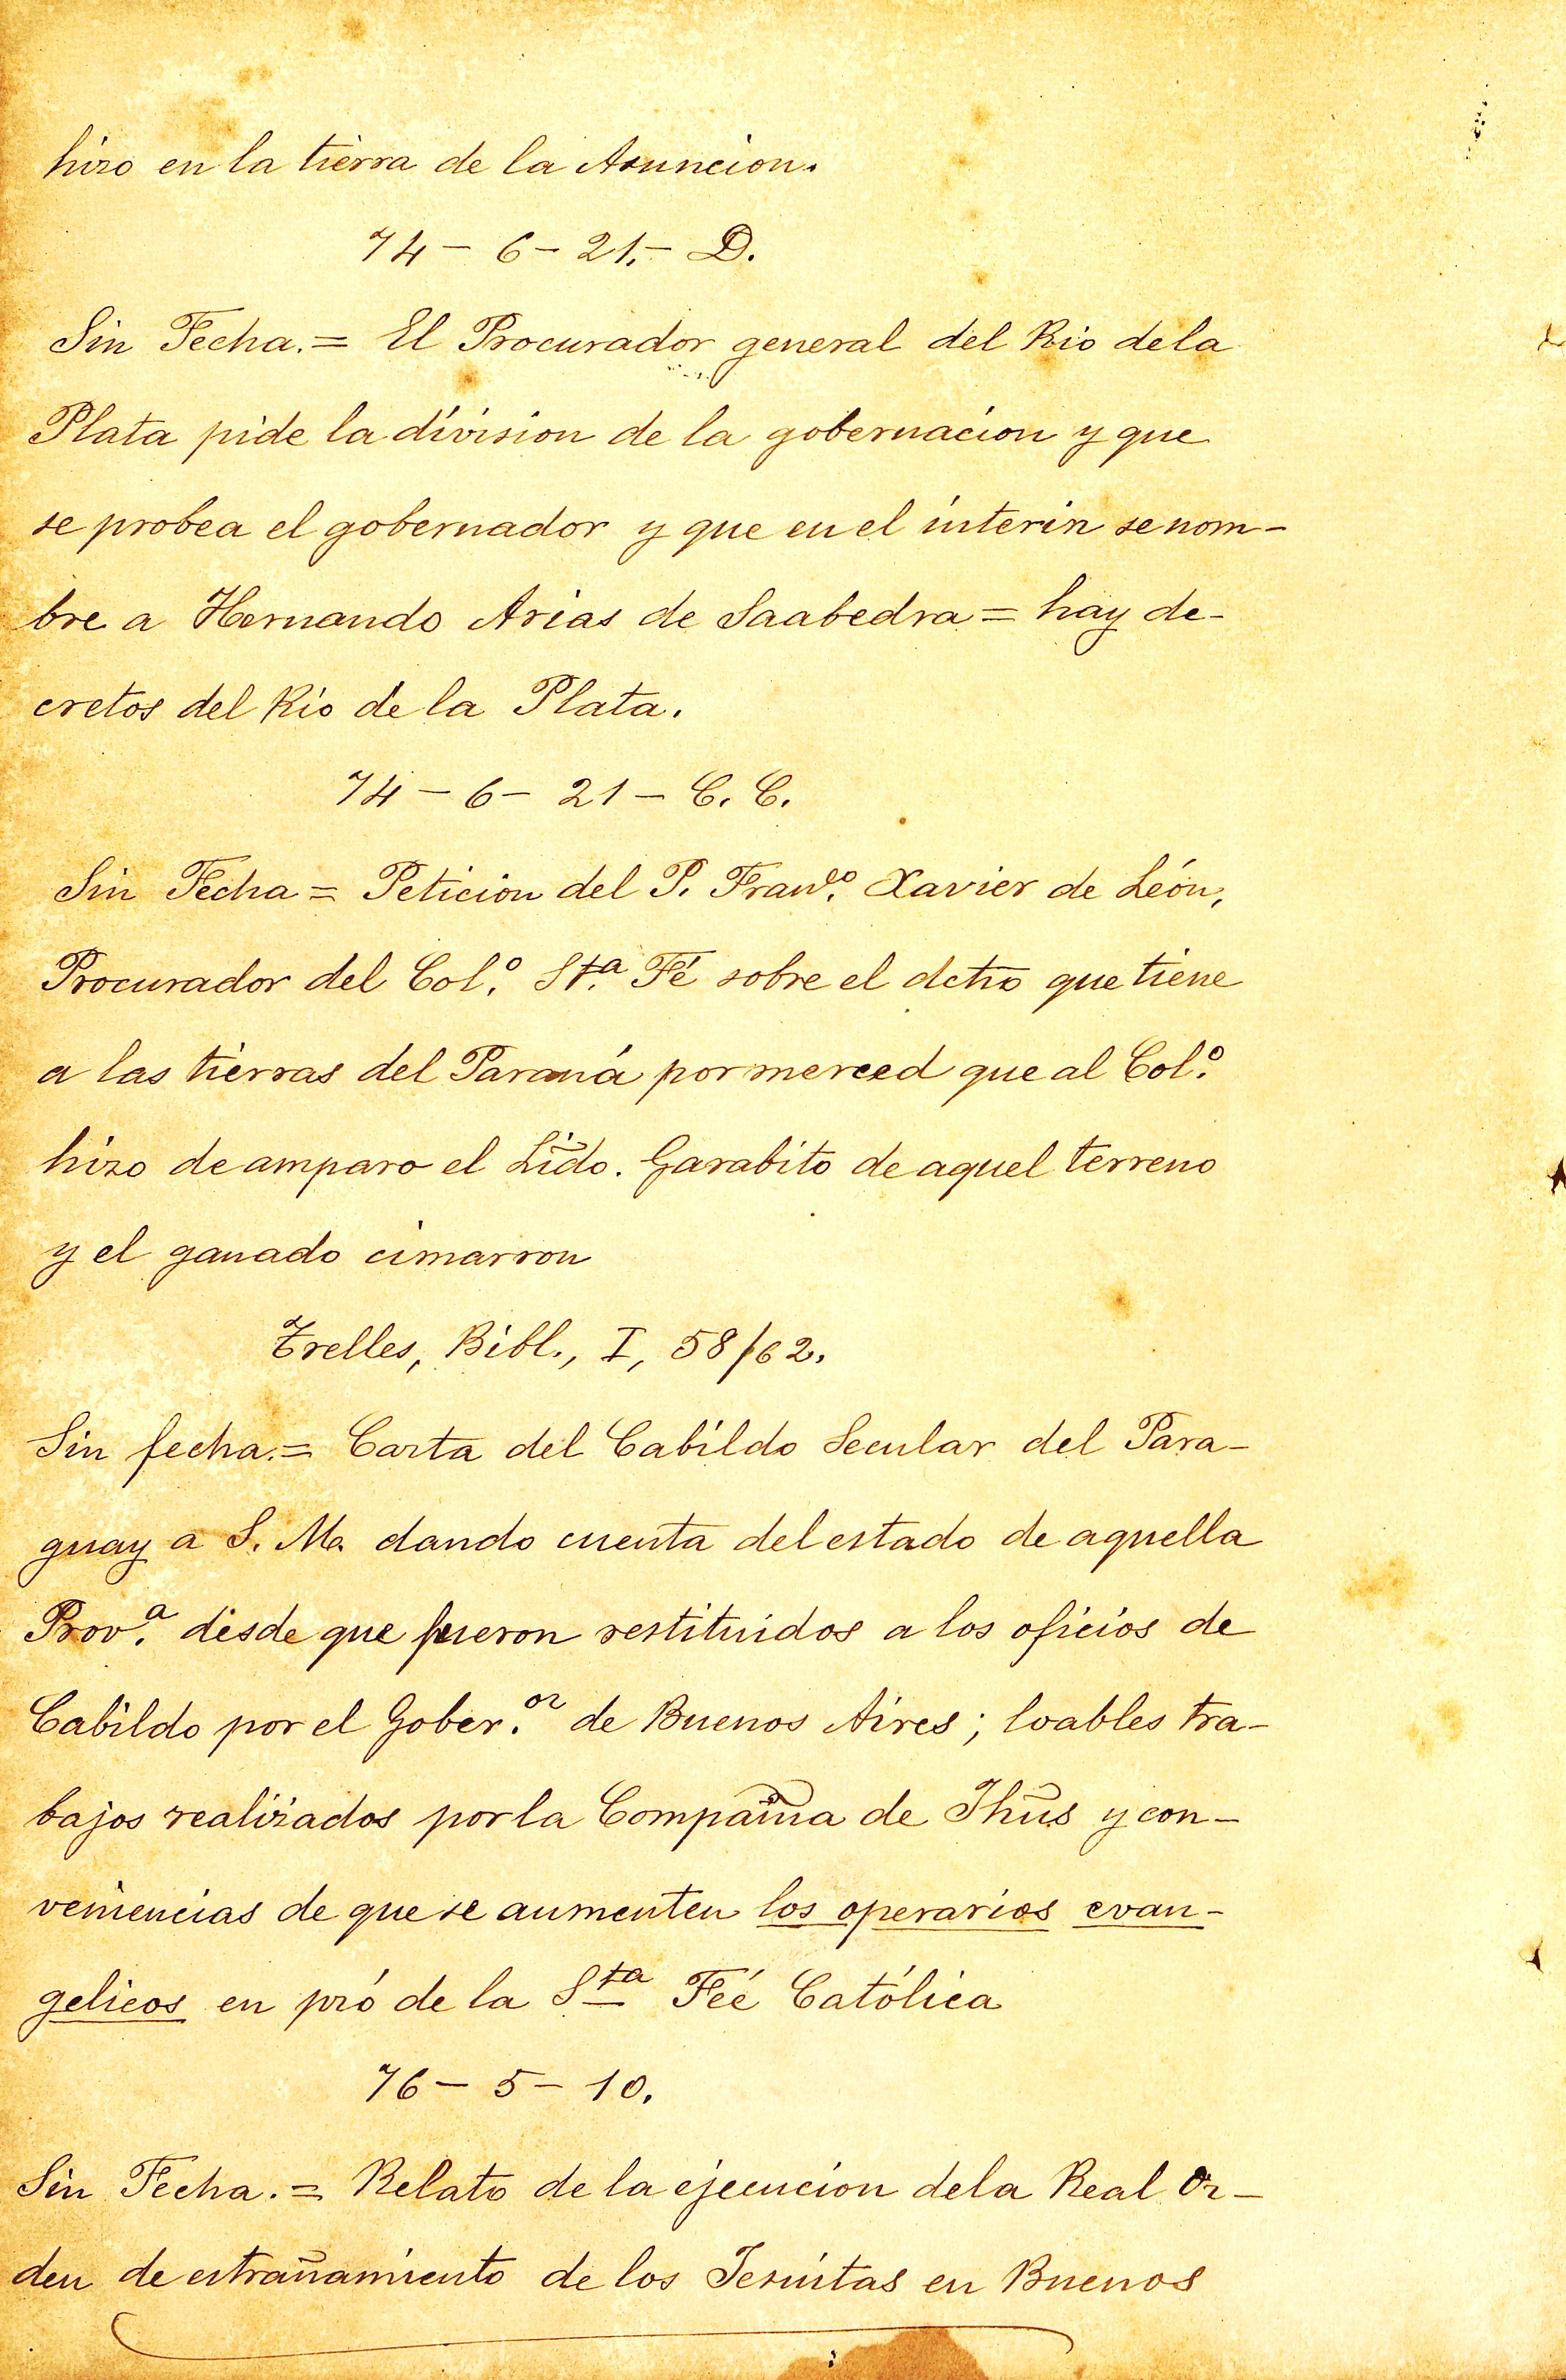 hizo en la tierra de la Asuncion.
74 - 6 - 21. - D.
Sin Fecha. = El Procurador general del Rio dela
Plata pide la división de la gobernación y que
se probea el gobernador y que en el ínterin se nom-
bre a Hernando Arias de Saabedra = hay de-
cretos del Río de la Plata.
74 - 6 - 21 - C. C.
Sin Fecha = Petición del P. Franco. Xavier de León,
Procurador del Col.º Sta. Fé sobre el dcho que tiene
a las tierras del Paraná por merced que al Col.º
hizo de amparo el Lido. Garabito de aquel terreno
y el ganado cimarron
Trelles, Bibl., I, 58/62.
Sin fecha. = Carta del Cabildo Secular del Para-
guay a S. M. dando cuenta del estado de aquella
Prov.a desde que fueron restituidos a los oficios de
Cabildo por el Gober.or de Buenos Aires; loables tra-
bajos realizados por la Compañia de Jhũs y con-
veniencias de que se aumenten los operarios evan-
gelicos en pró de la Sta Feé Católica
76 - 5 - 10.
Sin Fecha. = Relato de la ejecucion dela Real Or-
den de estrañamiento de los Jesuitas en Buenos